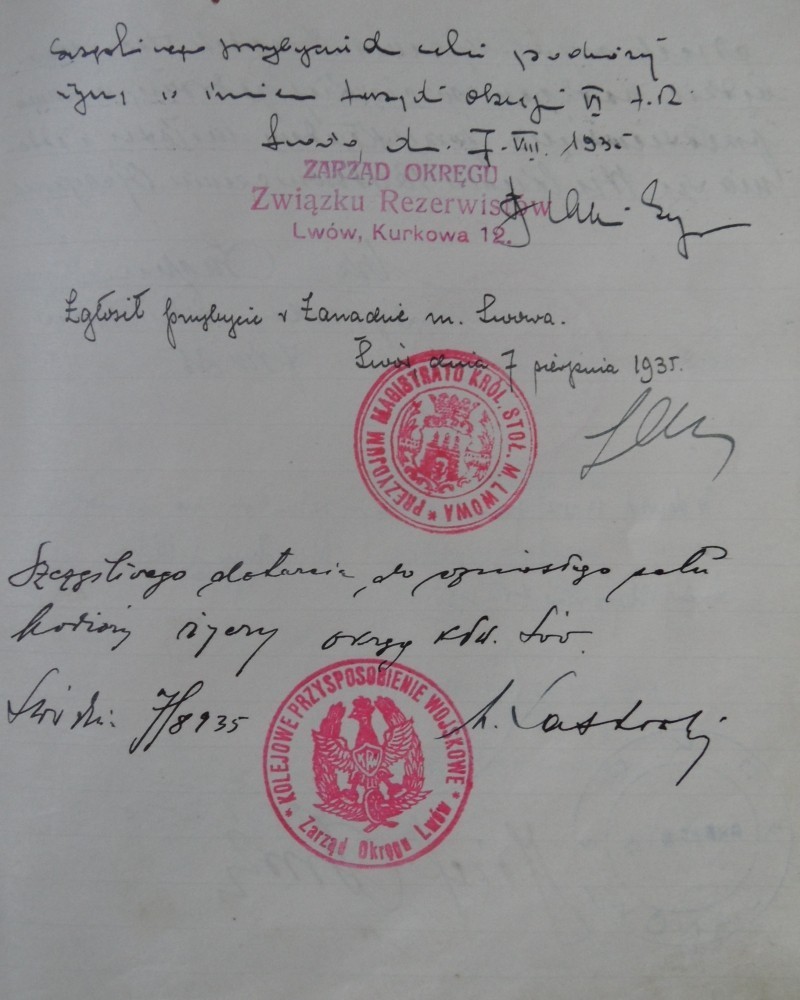 szczęśliwego przybycia do celu podróży
życzy w imieniu Zarządu Okręgu VI Z.R.
Lwów, dn. 7.VIII. 1935
ZARZĄD OKRĘGU
Związku Rezerwistów
Lwów, Kurkowa 12.
Zgłosił przybycie w Zarządzie m. Lwowa.
Lwów, dnia 7 sierpnia 1935.
* PREZYDJUM MAGISTRATU KRÓL. STOŁ. M. LWOWA
Szczęśliwego dotarcia do celu
podróży życzy okręg KPW. Lwów.
Lwów dn. 7/8 935
* KOLEJOWE PRZYSPOSOBIENIE WOJSKOWE *
KPW
Zarząd Okręgu Lwów